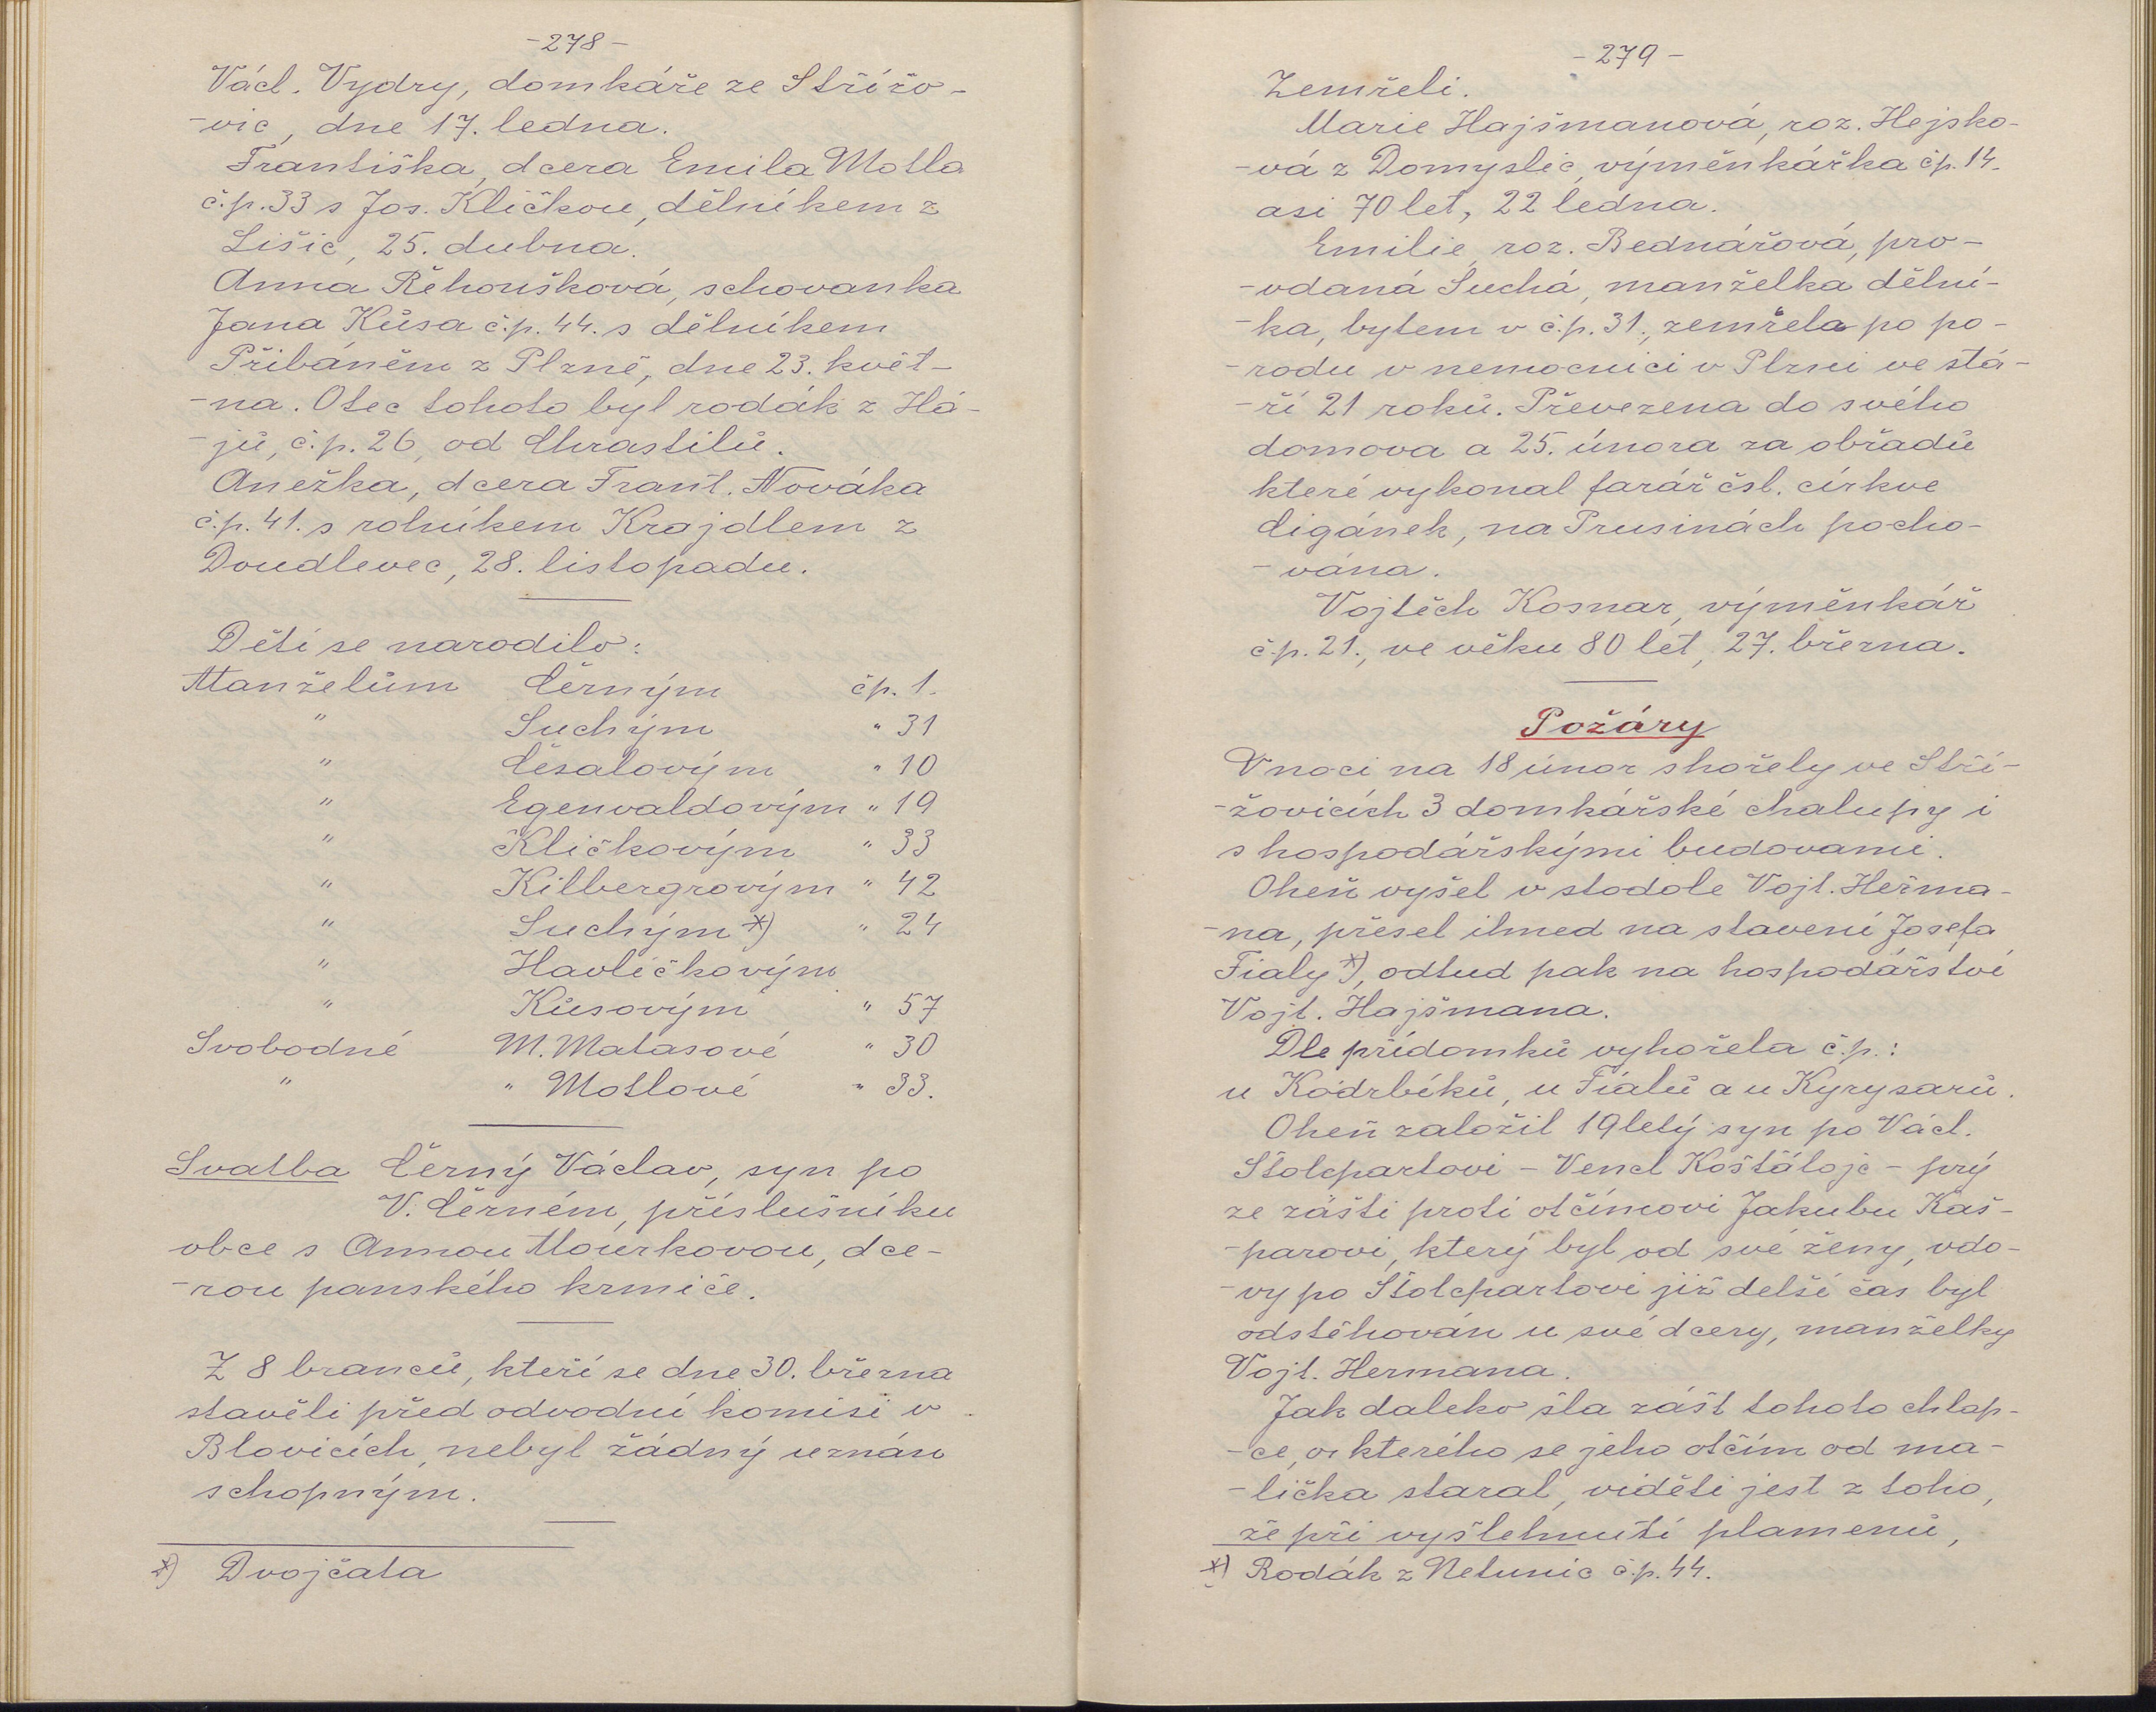 -278-
Václ. Vydry, domkáře ze Střížo-
-vic, dne 17. ledna.
Františka, dcera Emila Motla
č.p. 33 s Jos. Kličkou, dělníkem z
Lišic, 25. dubna.
Anna Řehoušková, schovanka
Jana Kůsa č.p. 44. s dělníkem
Přibáněm z Plzně, dne 23. květ-
-na. Otec tohoto byl rodák z Há-
-jů, č.p. 26, od Chrastilů.
Anežka, dcera Frant. Nováka
č.p. 41. s rolníkem Krajdlem z
Doudlevec, 28. listopadu.
Dětí se narodilo:
Manželům Černým čp. 1.
" Suchým " 31
" Česalovým " 10
" Egenvaldovým " 19
" Kličkovým " 33
" Kilbergrovým " 42
" Suchým *) " 24
" Havlíčkovým
" Kůsovým " 57
Svobodné M. Matasové " 30
" " Motlové " 33.
Svatba Černý Václav, syn po
V. Černém, příslušníku
obce s Annou Mourkovou, dce-
-rou panského krmiče.
Z 8 branců, kteří se dne 30. března
stavěli před odvodní komisi v
Blovicích, nebyl žádný uznán
schopným.
*) Dvojčata
-279-
Zemřeli.
Marie Hajšmanová, roz. Hejsko-
-vá z Domyslic, výměnkářka čp. 14.
asi 70 let, 22 ledna.
Emilie, roz. Bednářová, pro-
-vdaná Suchá, manželka dělní-
-ka, bytem v č.p. 31., zemřela po po-
-rodu v nemocnici v Plzni ve stá-
-ří 21 roků. Převezena do svého
domova a 25. února za obřadů
které vykonal farář čsl. církve
Cigánek, na Prusinách pocho-
-vána.
Vojtěch Kosnar, výměnkář
č.p. 21., ve věku 80 let, 27. března.
Požáry
V noci na 18 únor shořely ve Stří-
-žovicích 3 domkářské chalupy i
s hospodářskými budovami.
Oheň vyšel v stodole Vojt. Heřma-
-na, přesel ihned na stavení Josefa
Fialy *), odtud pak na hospodářství
Vojt. Hajšmana.
Dle přídomků vyhořela č.p.:
u Kodrbíků, u Fialů a u Kyrysarů.
Oheň založil 19letý syn po Václ.
Štolcpartovi - Vencl Košťálojc - prý
ze zášti proti otčímovi Jakubu Kaš-
-parovi, který byl od své ženy, vdo-
-vy po Štolcpartovi již delší čas byl
odstěhován u své dcery, manželky
Vojt. Hermana.
Jak daleko šla zášť tohoto chlap-
-ce, o kterého se jeho otčím od ma-
-lička staral, viděti jest z toho,
že při vyšlehnutí plamenů,
*) Rodák z Netunic č.p. 44.